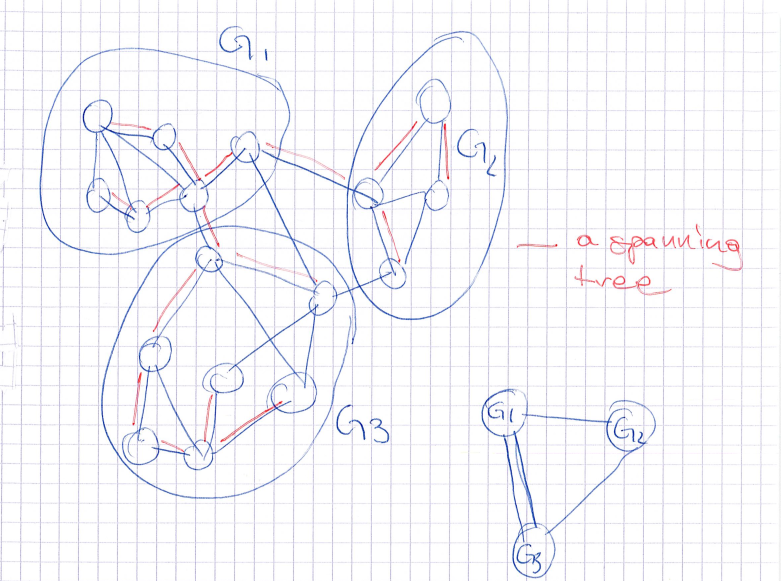 G1
G2
— a spanning
tree
G3
G1
G2
G3